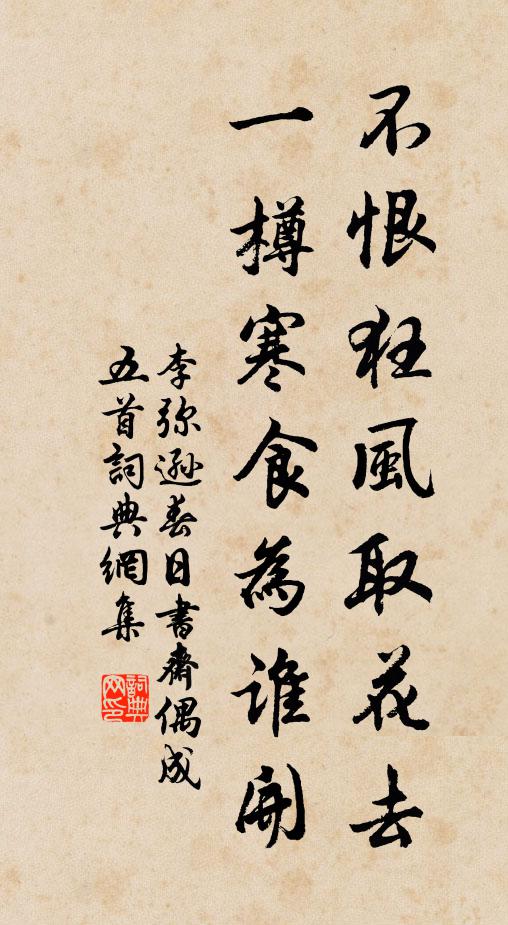 不恨狂風取花去
一樽寒食為誰開
李弥遜春日書齋偶成
五首詞典網集
詞典
网印